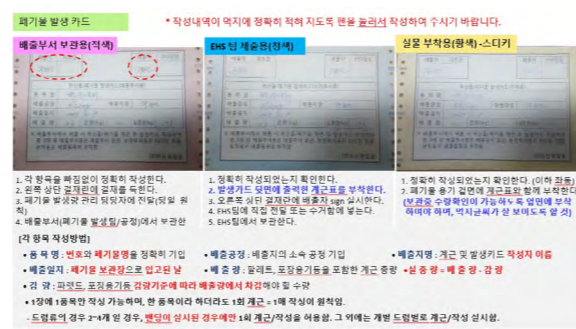 폐기물 발생 카드
* 작성내역이 먹지에 정확히 적혀 지도록 펜을 눌러서 작성하여 주시기 바랍니다.
배출부서 보관용(적색)
EHS 팀 제출용(청색)
실물 부착용(황색)-스티커
1. 각 항목을 빠짐없이 정확히 작성한다.
2. 왼쪽 상단 결재란에 결재를 득한다.
3. 폐기물 발생량 관리 담당자에 전달(당일 원칙)
4. 배출부서(폐기물 발생팀/공정)에서 보관한
1. 정확히 작성되었는지 확인한다.
2. 발생카드 뒷면에 출력한 계근표를 부착한다.
3. 오른쪽 상단 결재란에 배출자 sign 실시한다.
4. EHS팀에 직접 전달 또는 수거함에 넣는다.
5. EHS팀에서 보관한다.
1. 정확히 작성되었는지 확인한다. (이하 좌동)
2. 폐기물 용기 겉면에 계근표와 함께 부착한다
(보관중 수량확인이 가능하도록 옆면에 부착
하여야 하며, 먹지글씨가 잘 보이도록 할 것)
[각 항목 작성방법]
• 품 목 명 : 번호와 폐기물명을 정확히 기입
• 배출공정 : 배출지의 소속 공정 기입
• 배출자명 : 계근 및 발생카드 작성자 이름
• 배출일자 : 폐기물 보관장으로 입고된 날
• 배 출 량 : 팔레트, 포장용기등을 포함한 계근 중량
• 실 중 량 = 배 출 량 - 감 량
• 감 량 : 파렛드, 포장용기등 감량기준에 따라 배출량에서 차감해야 할 수량
• 1장에 1품목만 작성 가능하며, 한 품목이라 하더라도 1회 계근 = 1매 작성이 원칙임.
- 드럼류의 경우 2~4개 일 경우, 밴딩이 실시된 경우에만 1회 계근/작성을 허용함. 그 외에는 개별 드럼별로 계근/작성 실시함.